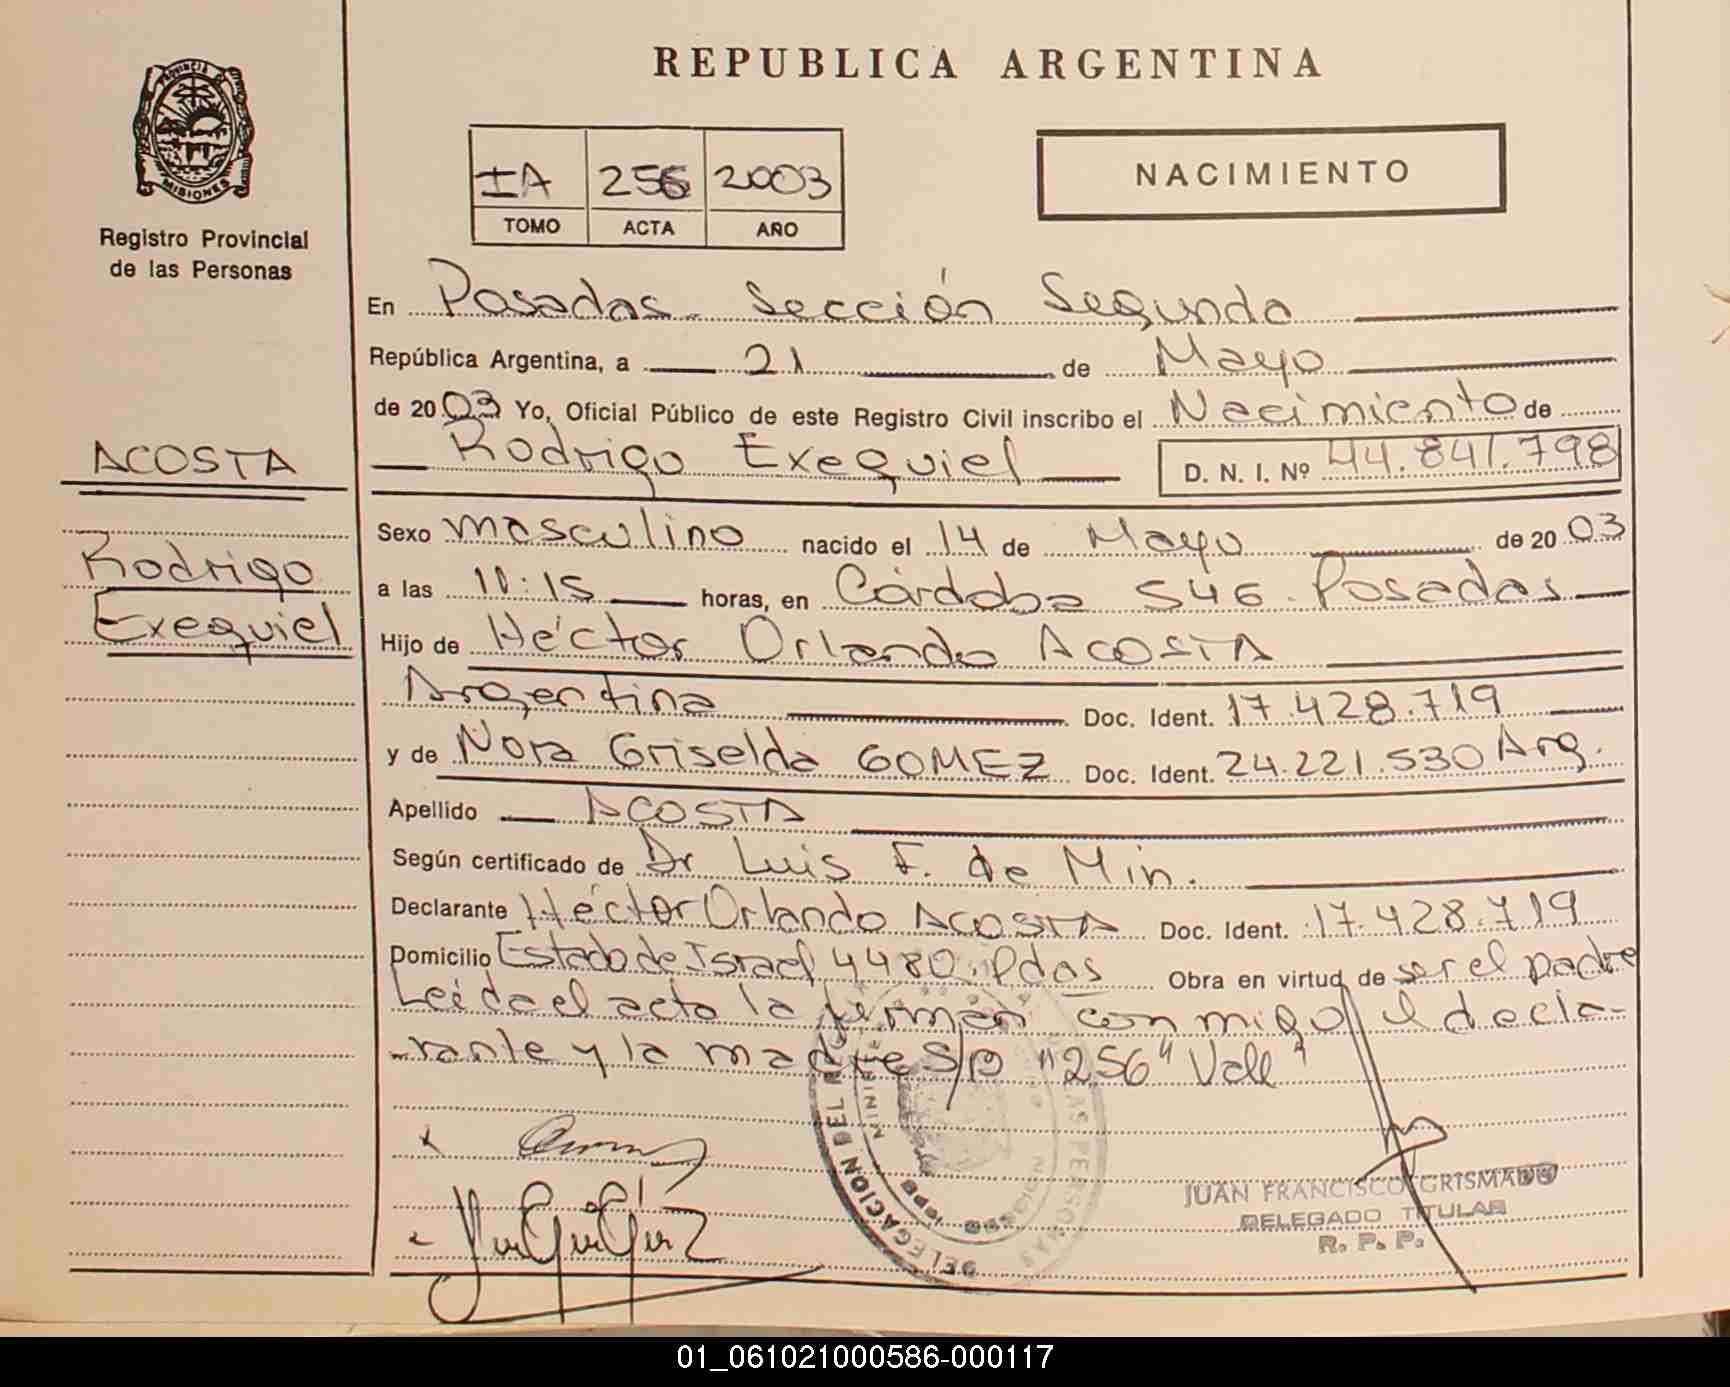 REPUBLICA ARGENTINA
PROVINCIA DE
MISIONES
Registro Provincial
de las Personas
IA 256 2003
TOMO ACTA AÑO
NACIMIENTO
En Posadas. Sección Segunda
República Argentina, a 21 de Mayo
de 2003 Yo, Oficial Público de este Registro Civil inscribo el Nacimiento de
Rodrigo Exequiel D. N. I. Nº 44.841.798
ACOSTA
Rodrigo
Exequiel
Sexo masculino nacido el 14 de Mayo de 2003
a las 11:15 horas, en Córdoba 546. Posadas
Hijo de Héctor Orlando ACOSTA
Argentina Doc. Ident. 17.428.719
y de Nora Griselda GOMEZ Doc. Ident. 24.221.530 Arg.
Apellido ACOSTA
Según certificado de Dr Luis F. de Min.
Declarante Héctor Orlando ACOSTA Doc. Ident. 17.428.719
Domicilio Estado de Israel 4480. Pdas Obra en virtud de ser el padre
Leida el acta la firman conmigo el decla-
rante y la madre S/B "256" Vale
DELEGACION DEL
LAS PERSONAS
JUAN FRANCISCO GRISMADO
DELEGADO TITULAR
R. P. P.
01_061021000586-000117